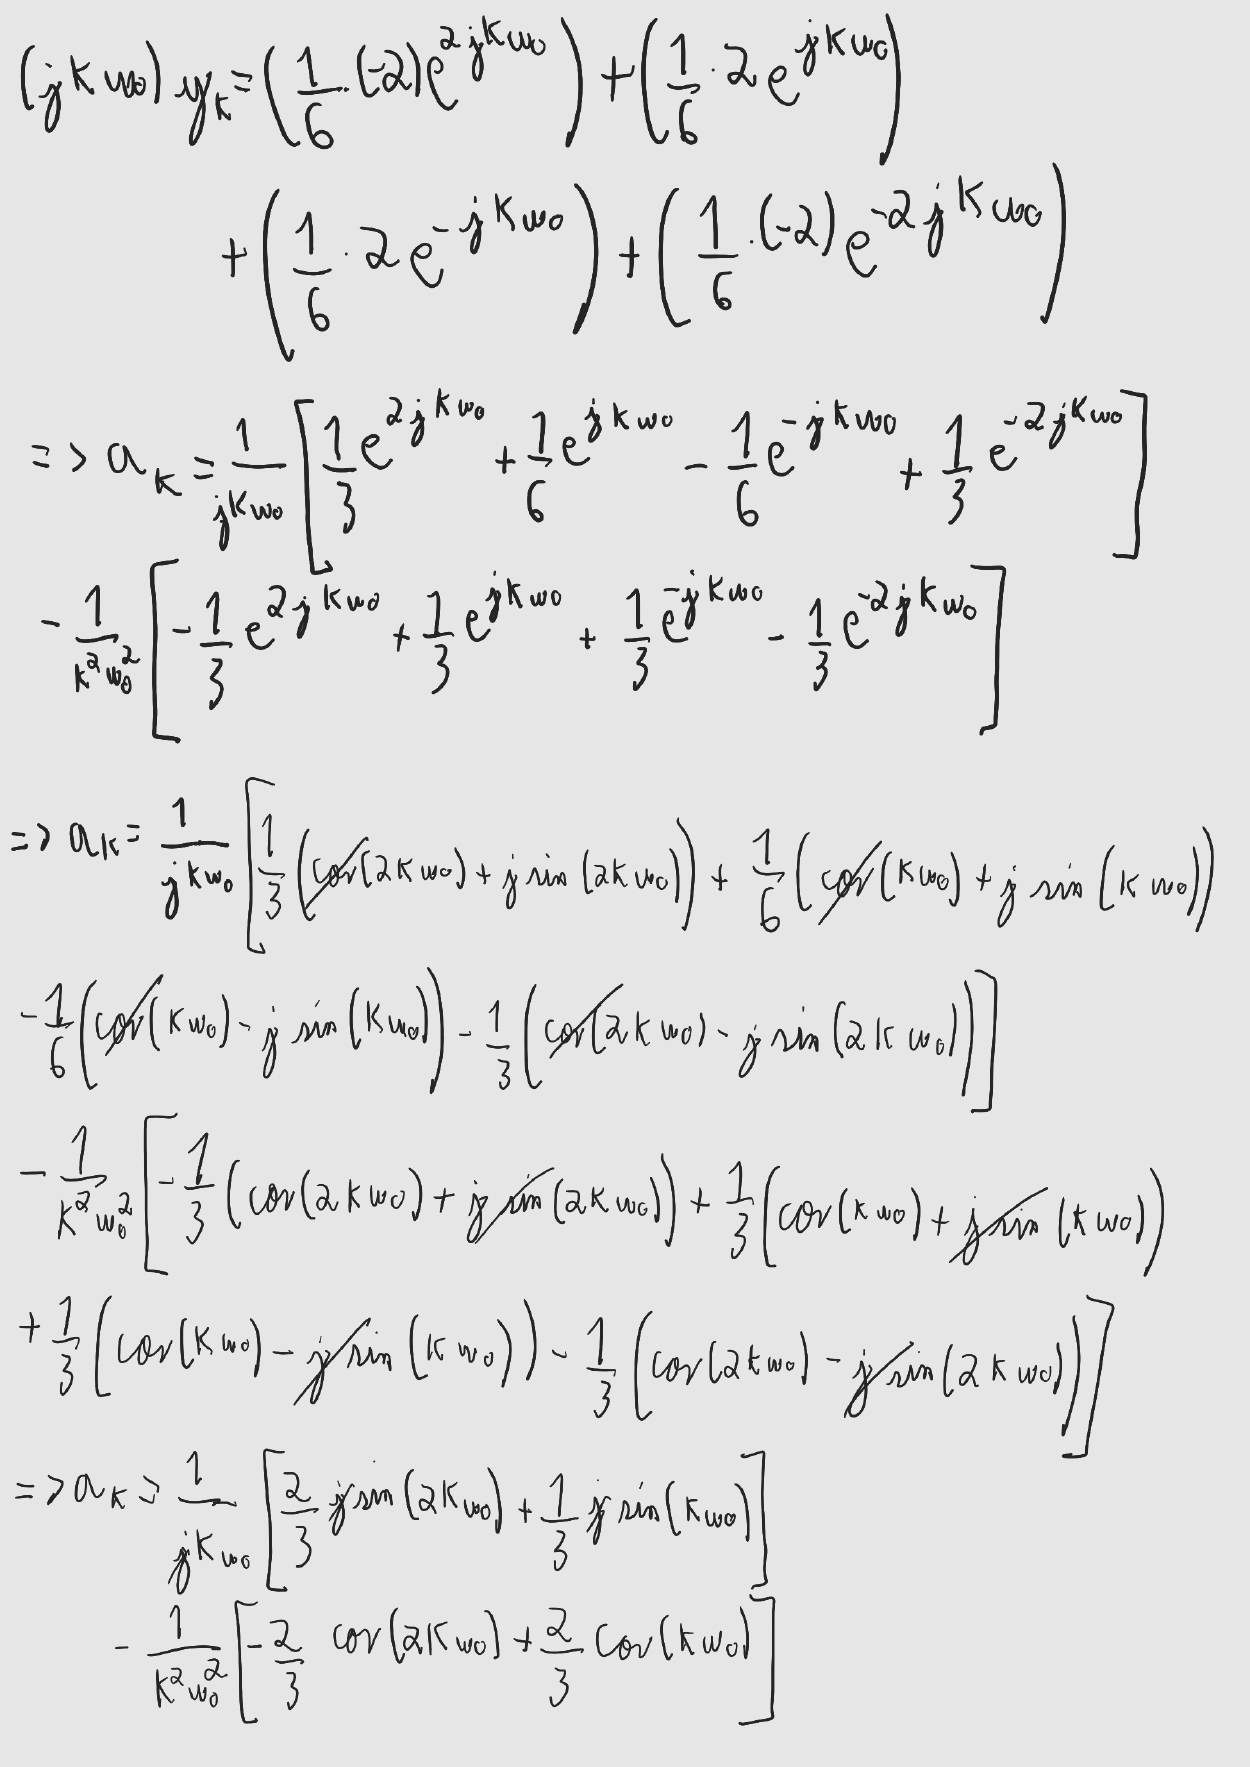 (jkω₀) y_k = (1/6 · (-2) e^{2jkω₀}) + (1/6 · 2 e^{jkω₀})
+ (1/6 · 2 e^{-jkω₀}) + (1/6 · (-2) e^{-2jkω₀})
=> a_k = 1/(jkω₀) [1/3 e^{2jkω₀} + 1/6 e^{jkω₀} - 1/6 e^{-jkω₀} + 1/3 e^{-2jkω₀}]
- 1/(k²ω₀²) [-1/3 e^{2jkω₀} + 1/3 e^{jkω₀} + 1/3 e^{-jkω₀} - 1/3 e^{-2jkω₀}]
=> a_k = 1/(jkω₀) [1/3 (cos(2kω₀) + j sin(2kω₀)) + 1/6 (cos(kω₀) + j sin(kω₀))
- 1/6 (cos(kω₀) - j sin(kω₀)) - 1/3 (cos(2kω₀) - j sin(2kω₀))]
- 1/(k²ω₀²) [-1/3 (cos(2kω₀) + j sin(2kω₀)) + 1/3 (cos(kω₀) + j sin(kω₀))
+ 1/3 (cos(kω₀) - j sin(kω₀)) - 1/3 (cos(2kω₀) - j sin(2kω₀))]
=> a_k = 1/(jkω₀) [2/3 j sin(2kω₀) + 1/3 j sin(kω₀)]
- 1/(k²ω₀²) [-2/3 cos(2kω₀) + 2/3 cos(kω₀)]